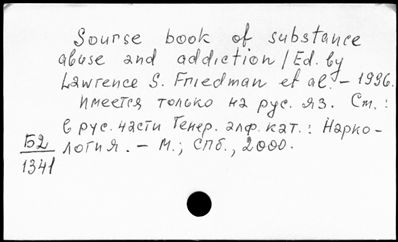 Sourse book of substance
abuse and addiction / Ed. by
Lawrence S. Friedman et al. - 1996.
Имеется только на рус. яз. См. :
в рус. части Генер. алф. кат. : Нарко-
логия. - М.; СПб., 2000.
Б2
1341